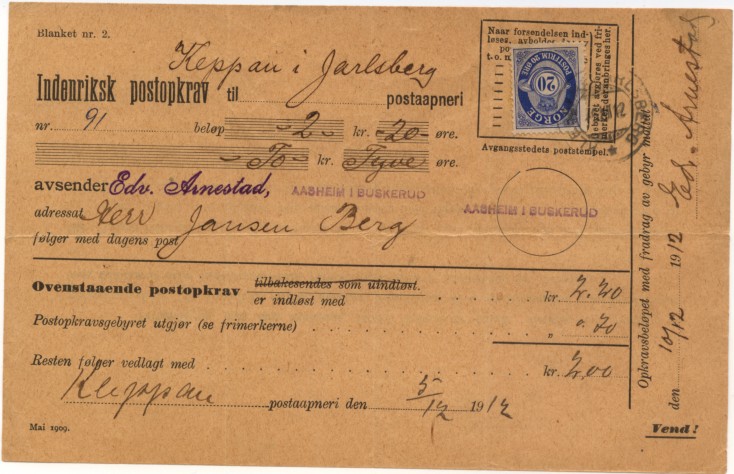 Blanket nr. 2.
Keppan i Jarlsberg
Indenriksk postopkrav til postaapneri
nr. 91 beløp 2 kr. 20 øre.
To kr. Tyve øre.
avsender Edv. Arnestad, AASHEIM I BUSKERUD
adressat Herr Jansen Berg
følger med dagens post
Naar forsendelsen ind-
løses, avholdes
t.o.
gebyret kvitteres ved fri-
merker, der anbringes her.
POSTFRIM 20 ØRE
20
NORGE
Avgangsstedets poststempel.
AASHEIM I BUSKERUD
Ovenstaaende postopkrav tilbakesendes som uindløst.
er indløst med kr. 2.20
Postopkravsgebyret utgjør (se frimerkerne) „ 0.20
Resten følger vedlagt med kr. 2,00
Kleppan postaapneri den 5/12 1912
Mai 1909.
Opkravsbeløpet med fradrag av gebyr mottat
den 10/12 1912 Ed. Arnestad
Vend!